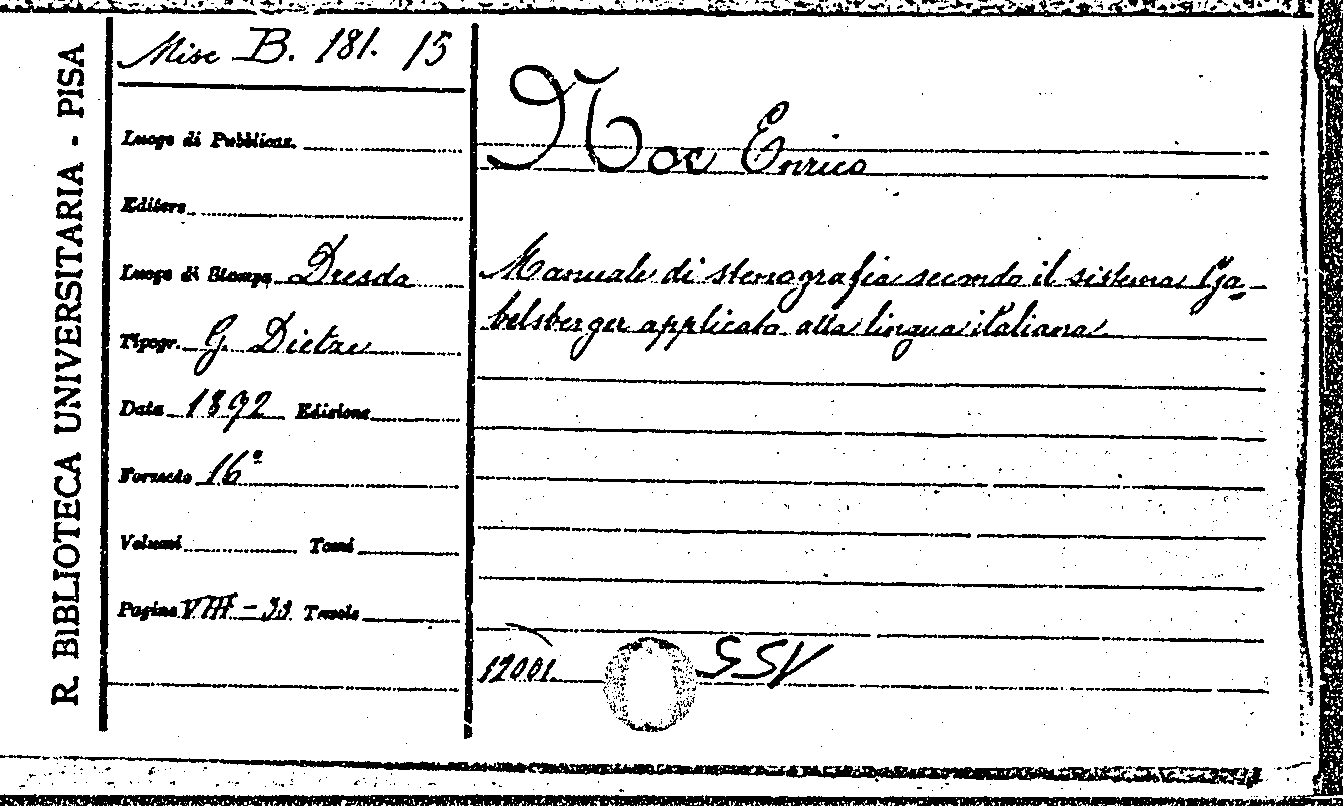 R. BIBLIOTECA UNIVERSITARIA - PISA
Misc B. 181. 15
Luogo di Pubblicaz.
Editore
Luogo di Stampa Dresda
Tipogr. G. Dietze
Data 1892 Edizione
Formato 16°
Volumi Tomi
Pagine VIII - 33 Tavole
Noe Enrico
Manuale di stenografia secondo il sistema Ga-
belsberger applicato alla lingua italiana
12001.
SSV